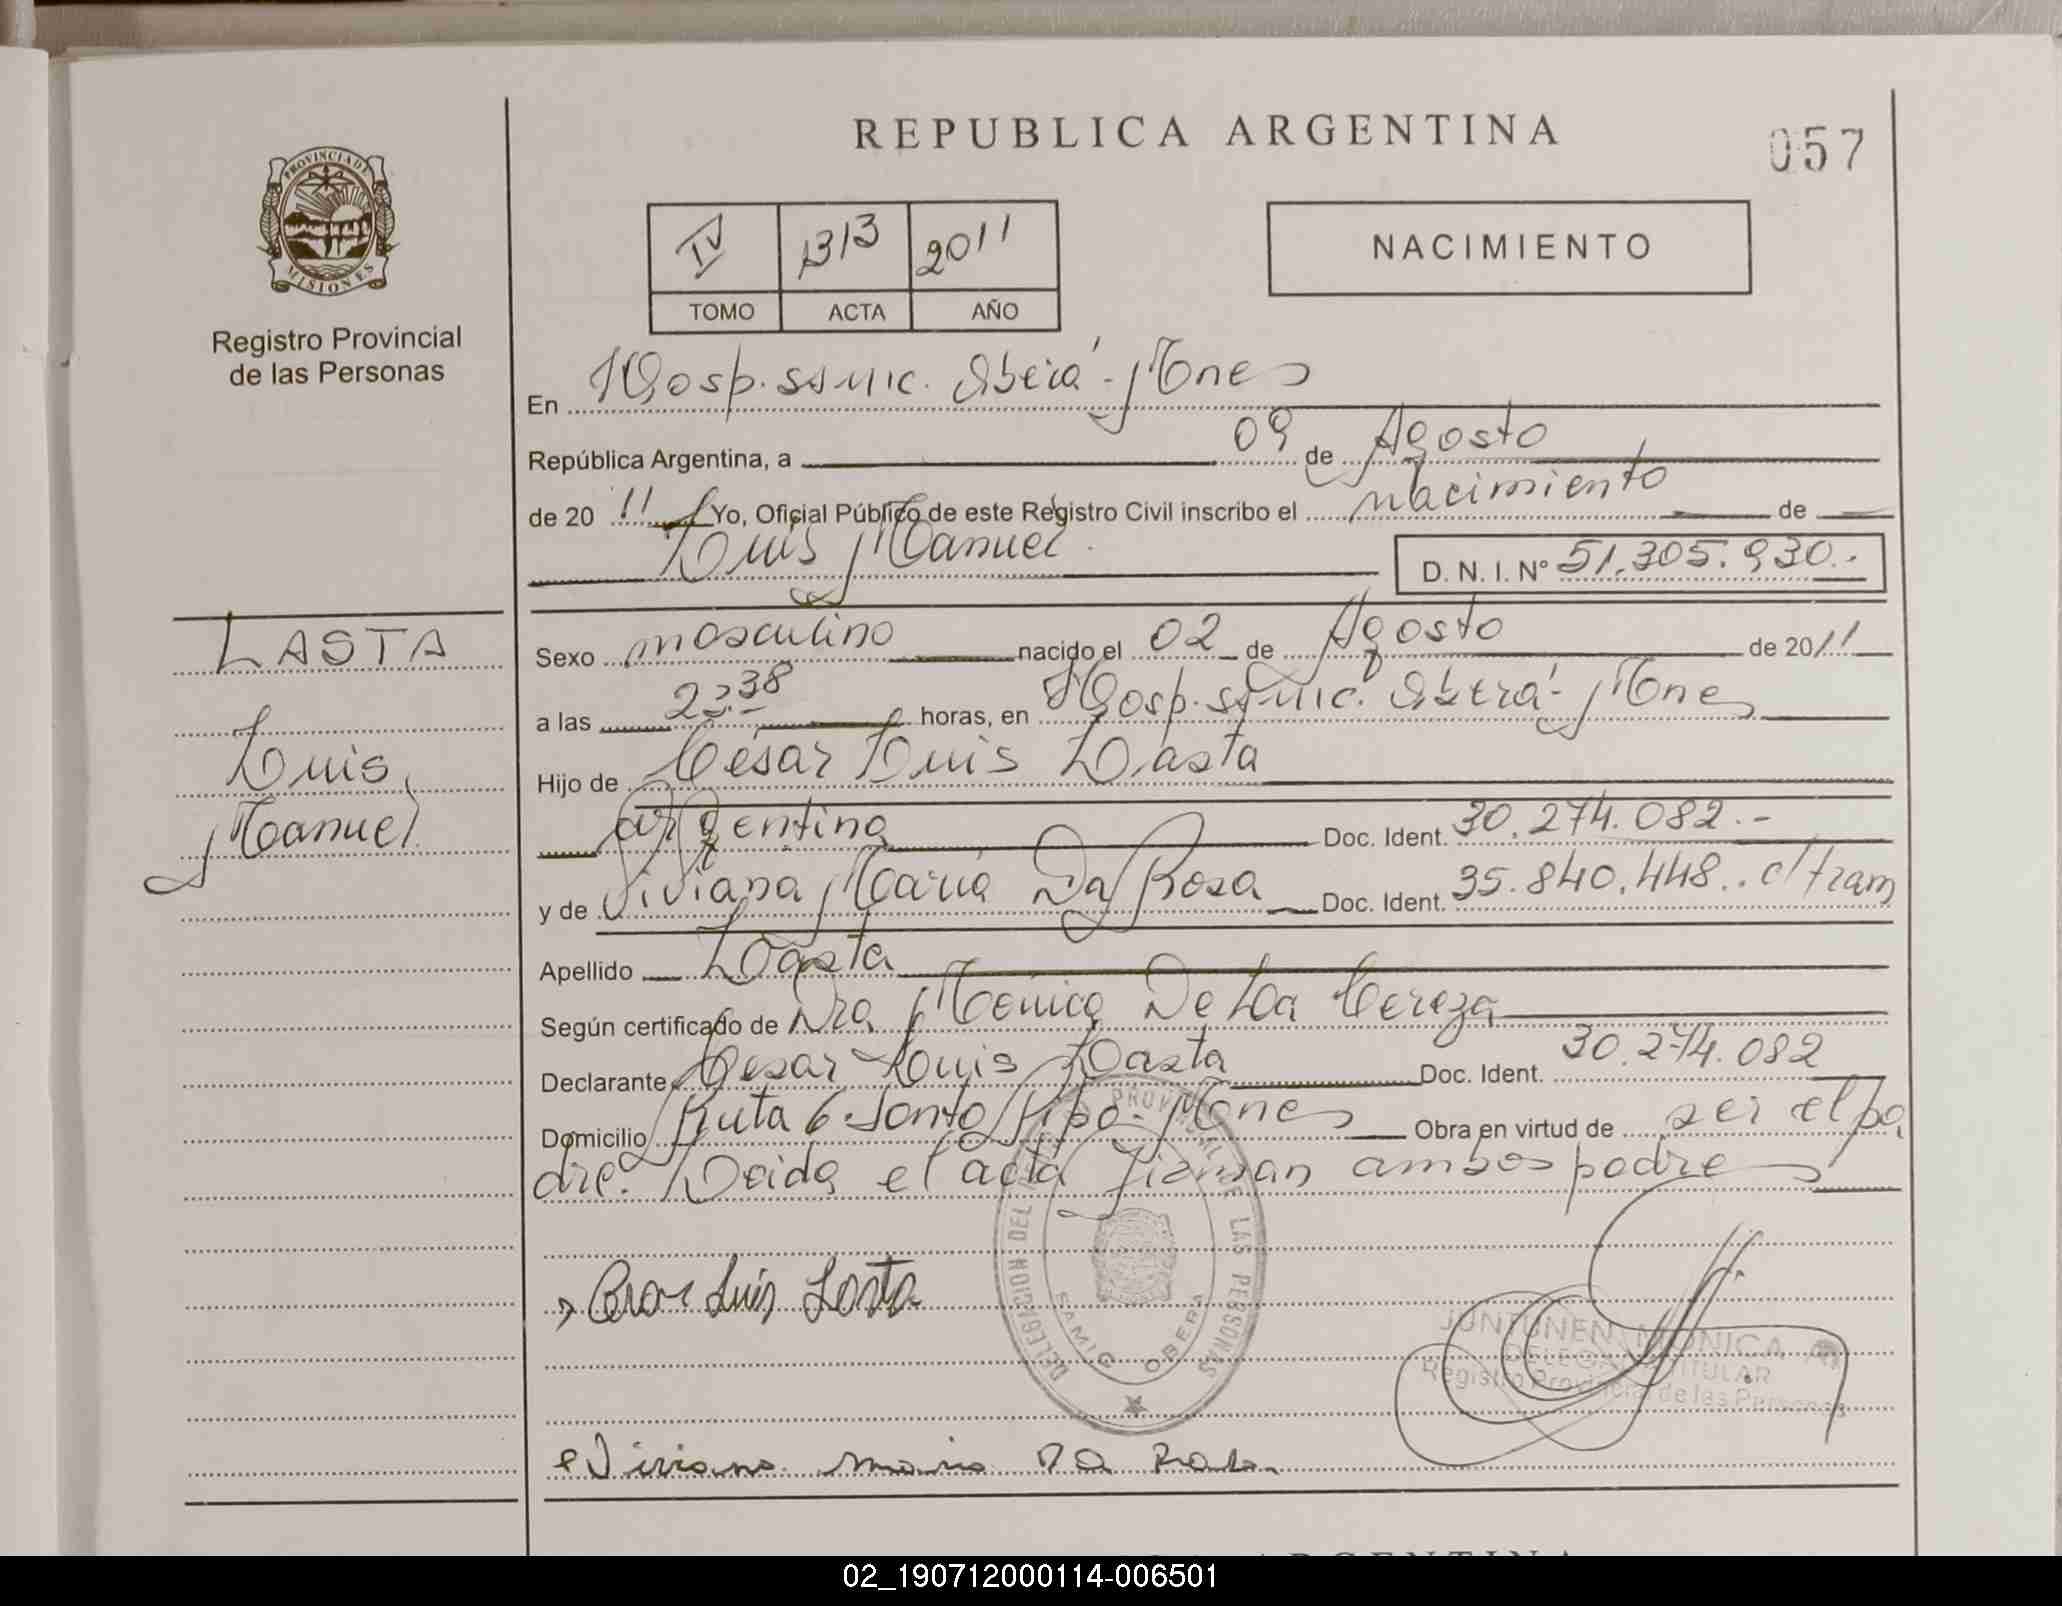 REPUBLICA ARGENTINA
057
PROVINCIA D
MISIONES
Registro Provincial
de las Personas
IV 1313 2011
TOMO ACTA AÑO
NACIMIENTO
En Hosp. SSMIC. Oberá - Mnes
República Argentina, a 09 de Agosto
de 20 11 Yo, Oficial Público de este Registro Civil inscribo el nacimiento de
Luis Manuel
D. N. I. Nº 51.305.930.-
LASTA
Luis
Manuel
Sexo masculino nacido el 02 de Agosto de 2011
a las 22:38 horas, en Hosp. SSMIC. Oberá - Mnes
Hijo de César Luis Lasta
argentino Doc. Ident. 30.274.082.-
y de Viviana María Da Rosa Doc. Ident. 35.840.448.. c/tram
Apellido Lasta
Según certificado de Dra Mónica De La
Declarante Cesar Luis Lasta Doc. Ident. 30.274.082
Domicilio Ruta 6 Santo Pipo - Mnes Obra en virtud de ser el pa
dre. Leida el acta firman ambos padres
Cesar Luis Lasta
DELEGACION DEL PROVINCIAL DE LAS PERSONAS
SAMIC OBERA
JUNTUNEN MONICA
DELEGADA TITULAR
Registro Provincial de las Personas
Viviana maria Da Rosa
ARGENTINA
02_190712000114-006501